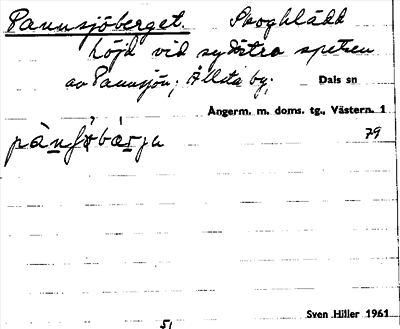 Pannsjöberget. Skogklädd
höjd vid sydöstra spetsen
av Pannsjön; Ållsta by; Dals sn
Ångerm. m. doms. tg., Västern. 1
79
Sven Hiller 1961
51